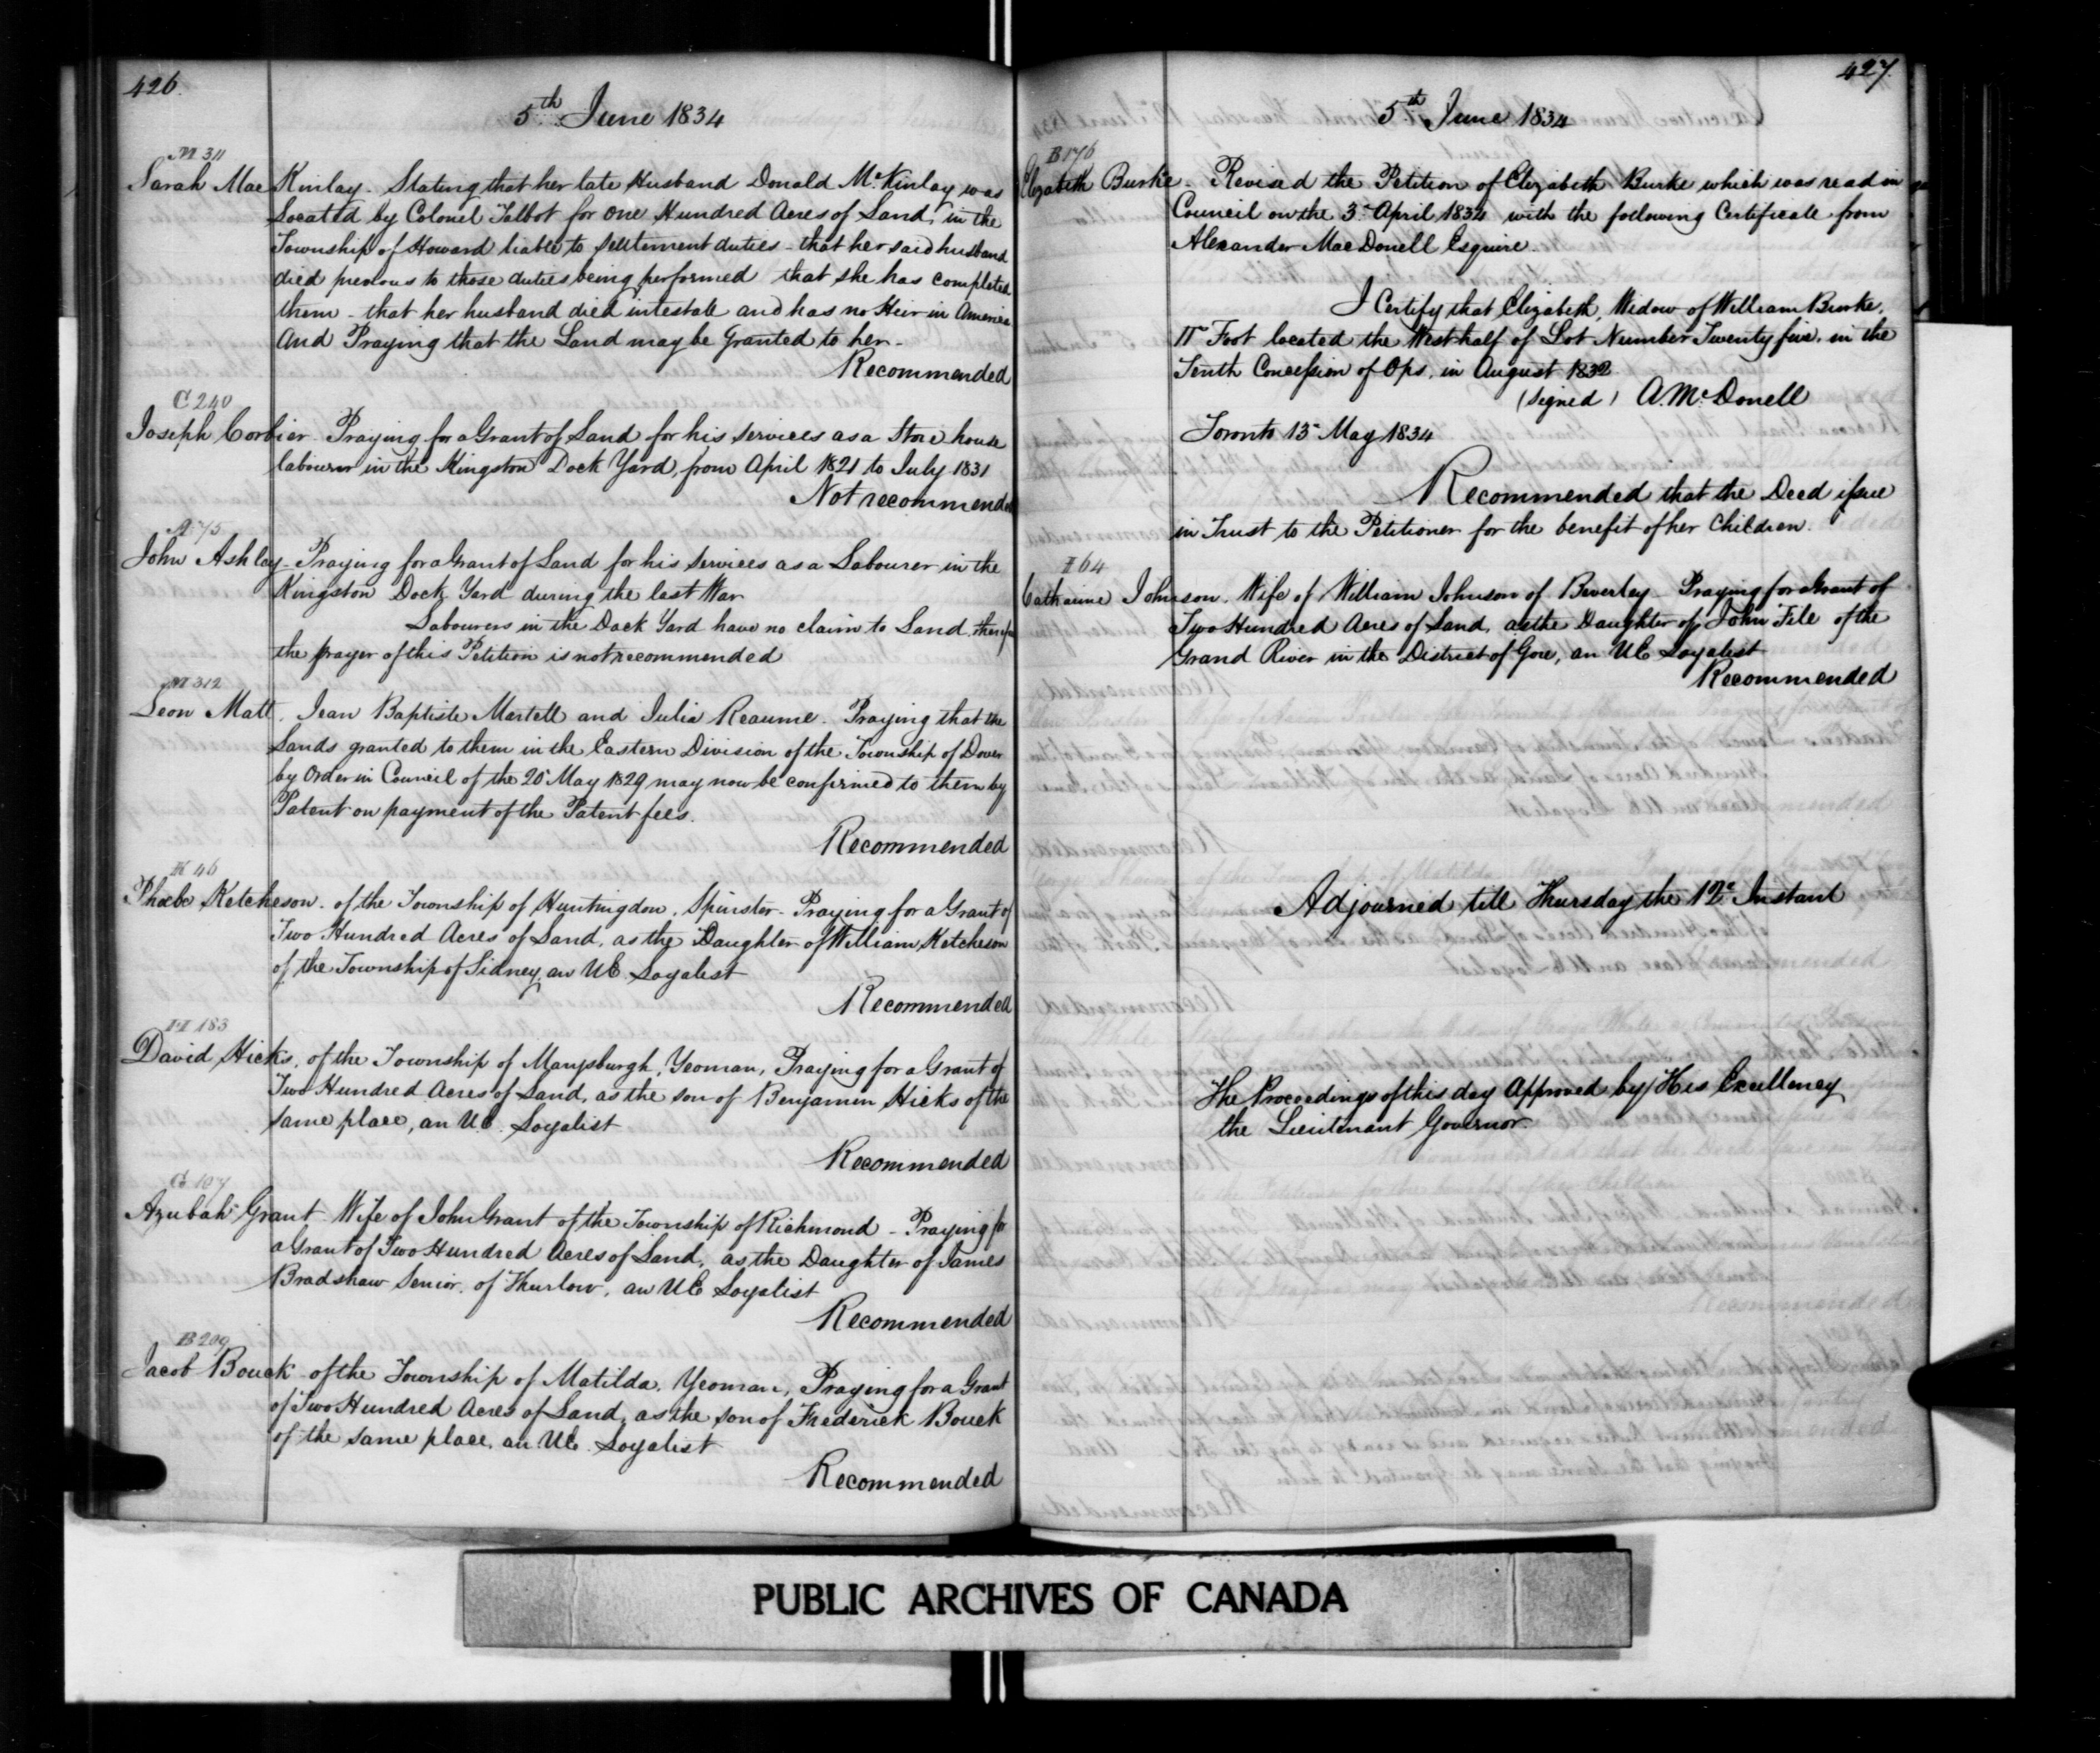 426.
5th June 1834
M 311
Sarah Mac Kinlay - Stating that her late Husband Donald McKinlay was
Located by Colonel Talbot for one Hundred Acres of Land, in the
Township of Howard liable to settlement duties - that her said husband
died previous to those duties being performed that she has completed
them - that her husband died intestate and has no Heir in America
And Praying that the Land may be Granted to her -
Recommended
C 240
Joseph Corbier - Praying for a Grant of Land for his services as a Store house
labourer in the Kingston Dock Yard, from April 1821 to July 1831
Not recommended
A 75
John Ashley - Praying for a Grant of Land for his services as a Labourer in the
Kingston Dock Yard during the last War
Labourers in the Dock Yard have no claim to Land, therefore
the prayer of this Petition is not recommended
M 312
Leon Matt, Jean Baptiste Martell and Julia Reaume - Praying that the
Lands granted to them in the Eastern Division of the Township of Dover
by Order in Council of the 20 May 1829 may now be confirmed to them by
Patent on payment of the Patent fees.
Recommended
K 46
Phoebe Ketcheson - of the Township of Huntingdon, Spinster - Praying for a Grant of
Two Hundred Acres of Land, as the Daughter of William Ketcheson
of the Township of Sidney, an UE Loyalist
Recommended
H 183
David Hicks, of the Township of Marysburgh, Yeoman, Praying for a Grant of
Two Hundred Acres of Land, as the son of Benjamin Hicks of the
same place, an U.E. Loyalist
Recommended
G 107
Azubah Grant Wife of John Grant of the Township of Richmond - Praying for
a Grant of Two Hundred Acres of Land, as the Daughter of James
Bradshaw Senior, of Thurlow, an UE Loyalist
Recommended
B 209
Jacob Bouck - of the Township of Matilda, Yeoman, Praying for a Grant
of Two Hundred Acres of Land, as the son of Frederick Bouck
of the same place, an UE. Loyalist
Recommended
427.
5th June 1834
B 176
Elizabeth Burke - Revised the Petition of Elizabeth Burke which was read in
Council on the 3d April 1834 with the following Certificate from
Alexander MacDonell Esquire.
I Certify that Elizabeth, Widow of William Burke,
Foot located the West half of Lot Number Twenty five, in the
Tenth Concession of Ops, in August 1832
(signed) A. McDonell
Toronto 13 May 1834
Recommended that the Deed issue
in Trust to the Petitioner for the benefit of her Children.
I 64
Catharine Johnson, Wife of William Johnson of Beverley - Praying for a Grant of
Two Hundred Acres of Land, as the Daughter of John File of the
Grand River in the District of Gore, an UE Loyalist
Recommended
Adjourned till Thursday the 12 Instant
The Proceedings of this day Approved by His Excellency
the Lieutenant Governor
PUBLIC ARCHIVES OF CANADA